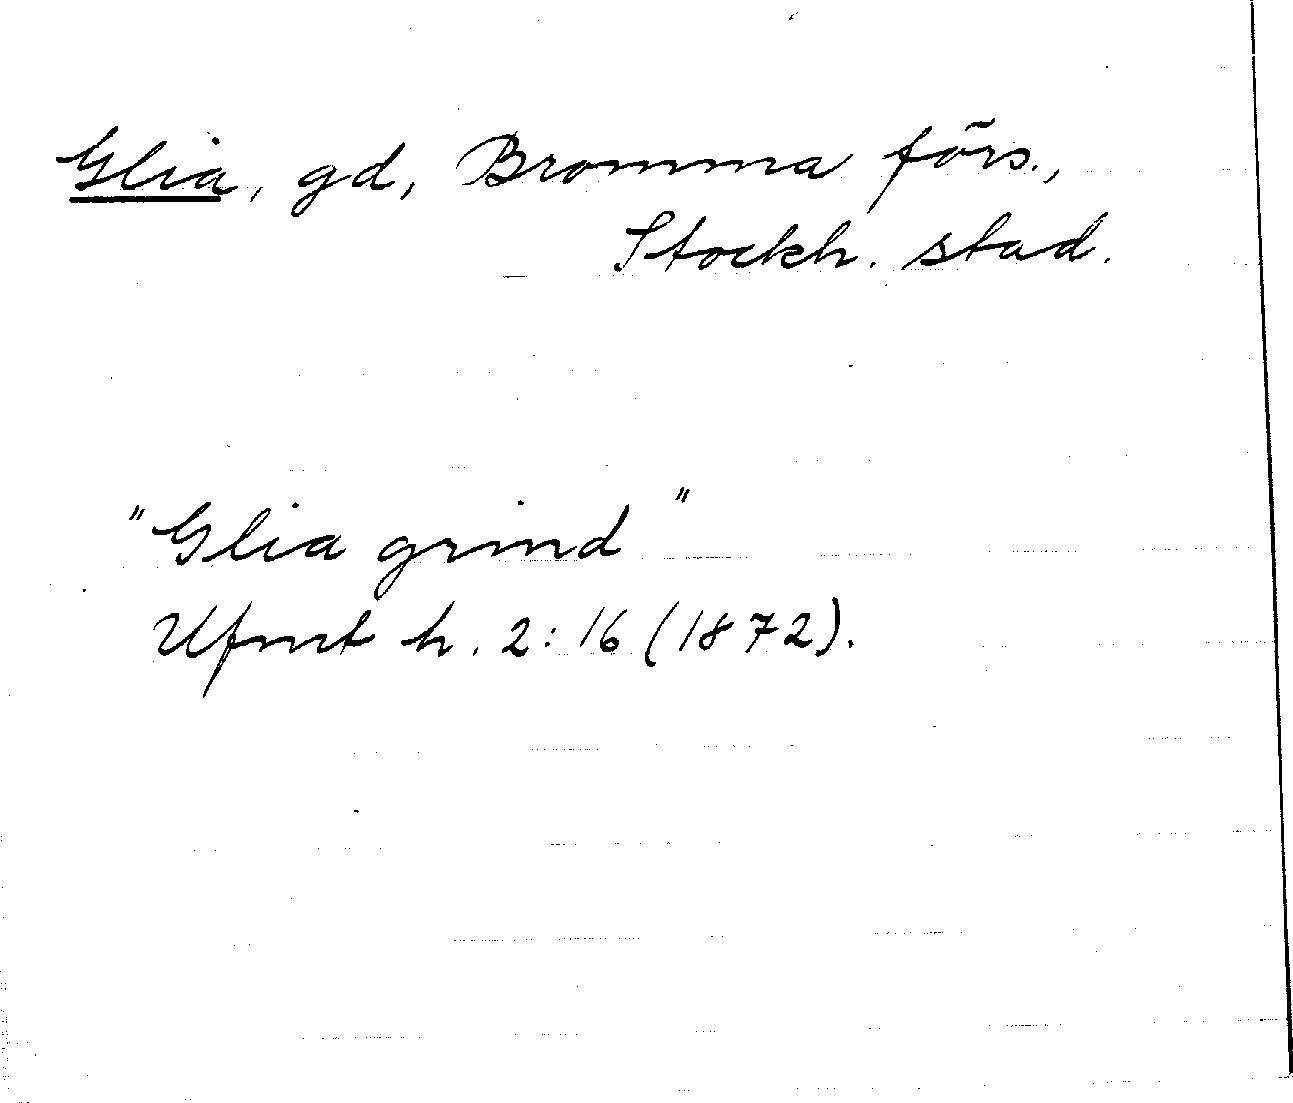 Glia, gd, Bromma förs.,
Stockh. stad.
"Glia grind"
Ufmt h. 2:16 (1872).